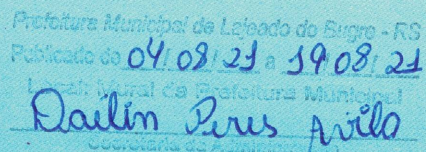 Prefeitura Municipal de Lajeado do Bugre - RS
Publicado de 04/08/21 a 19/08/21
Local: Mural da Prefeitura Municipal
Dailin Peres Avila
Secretaria de